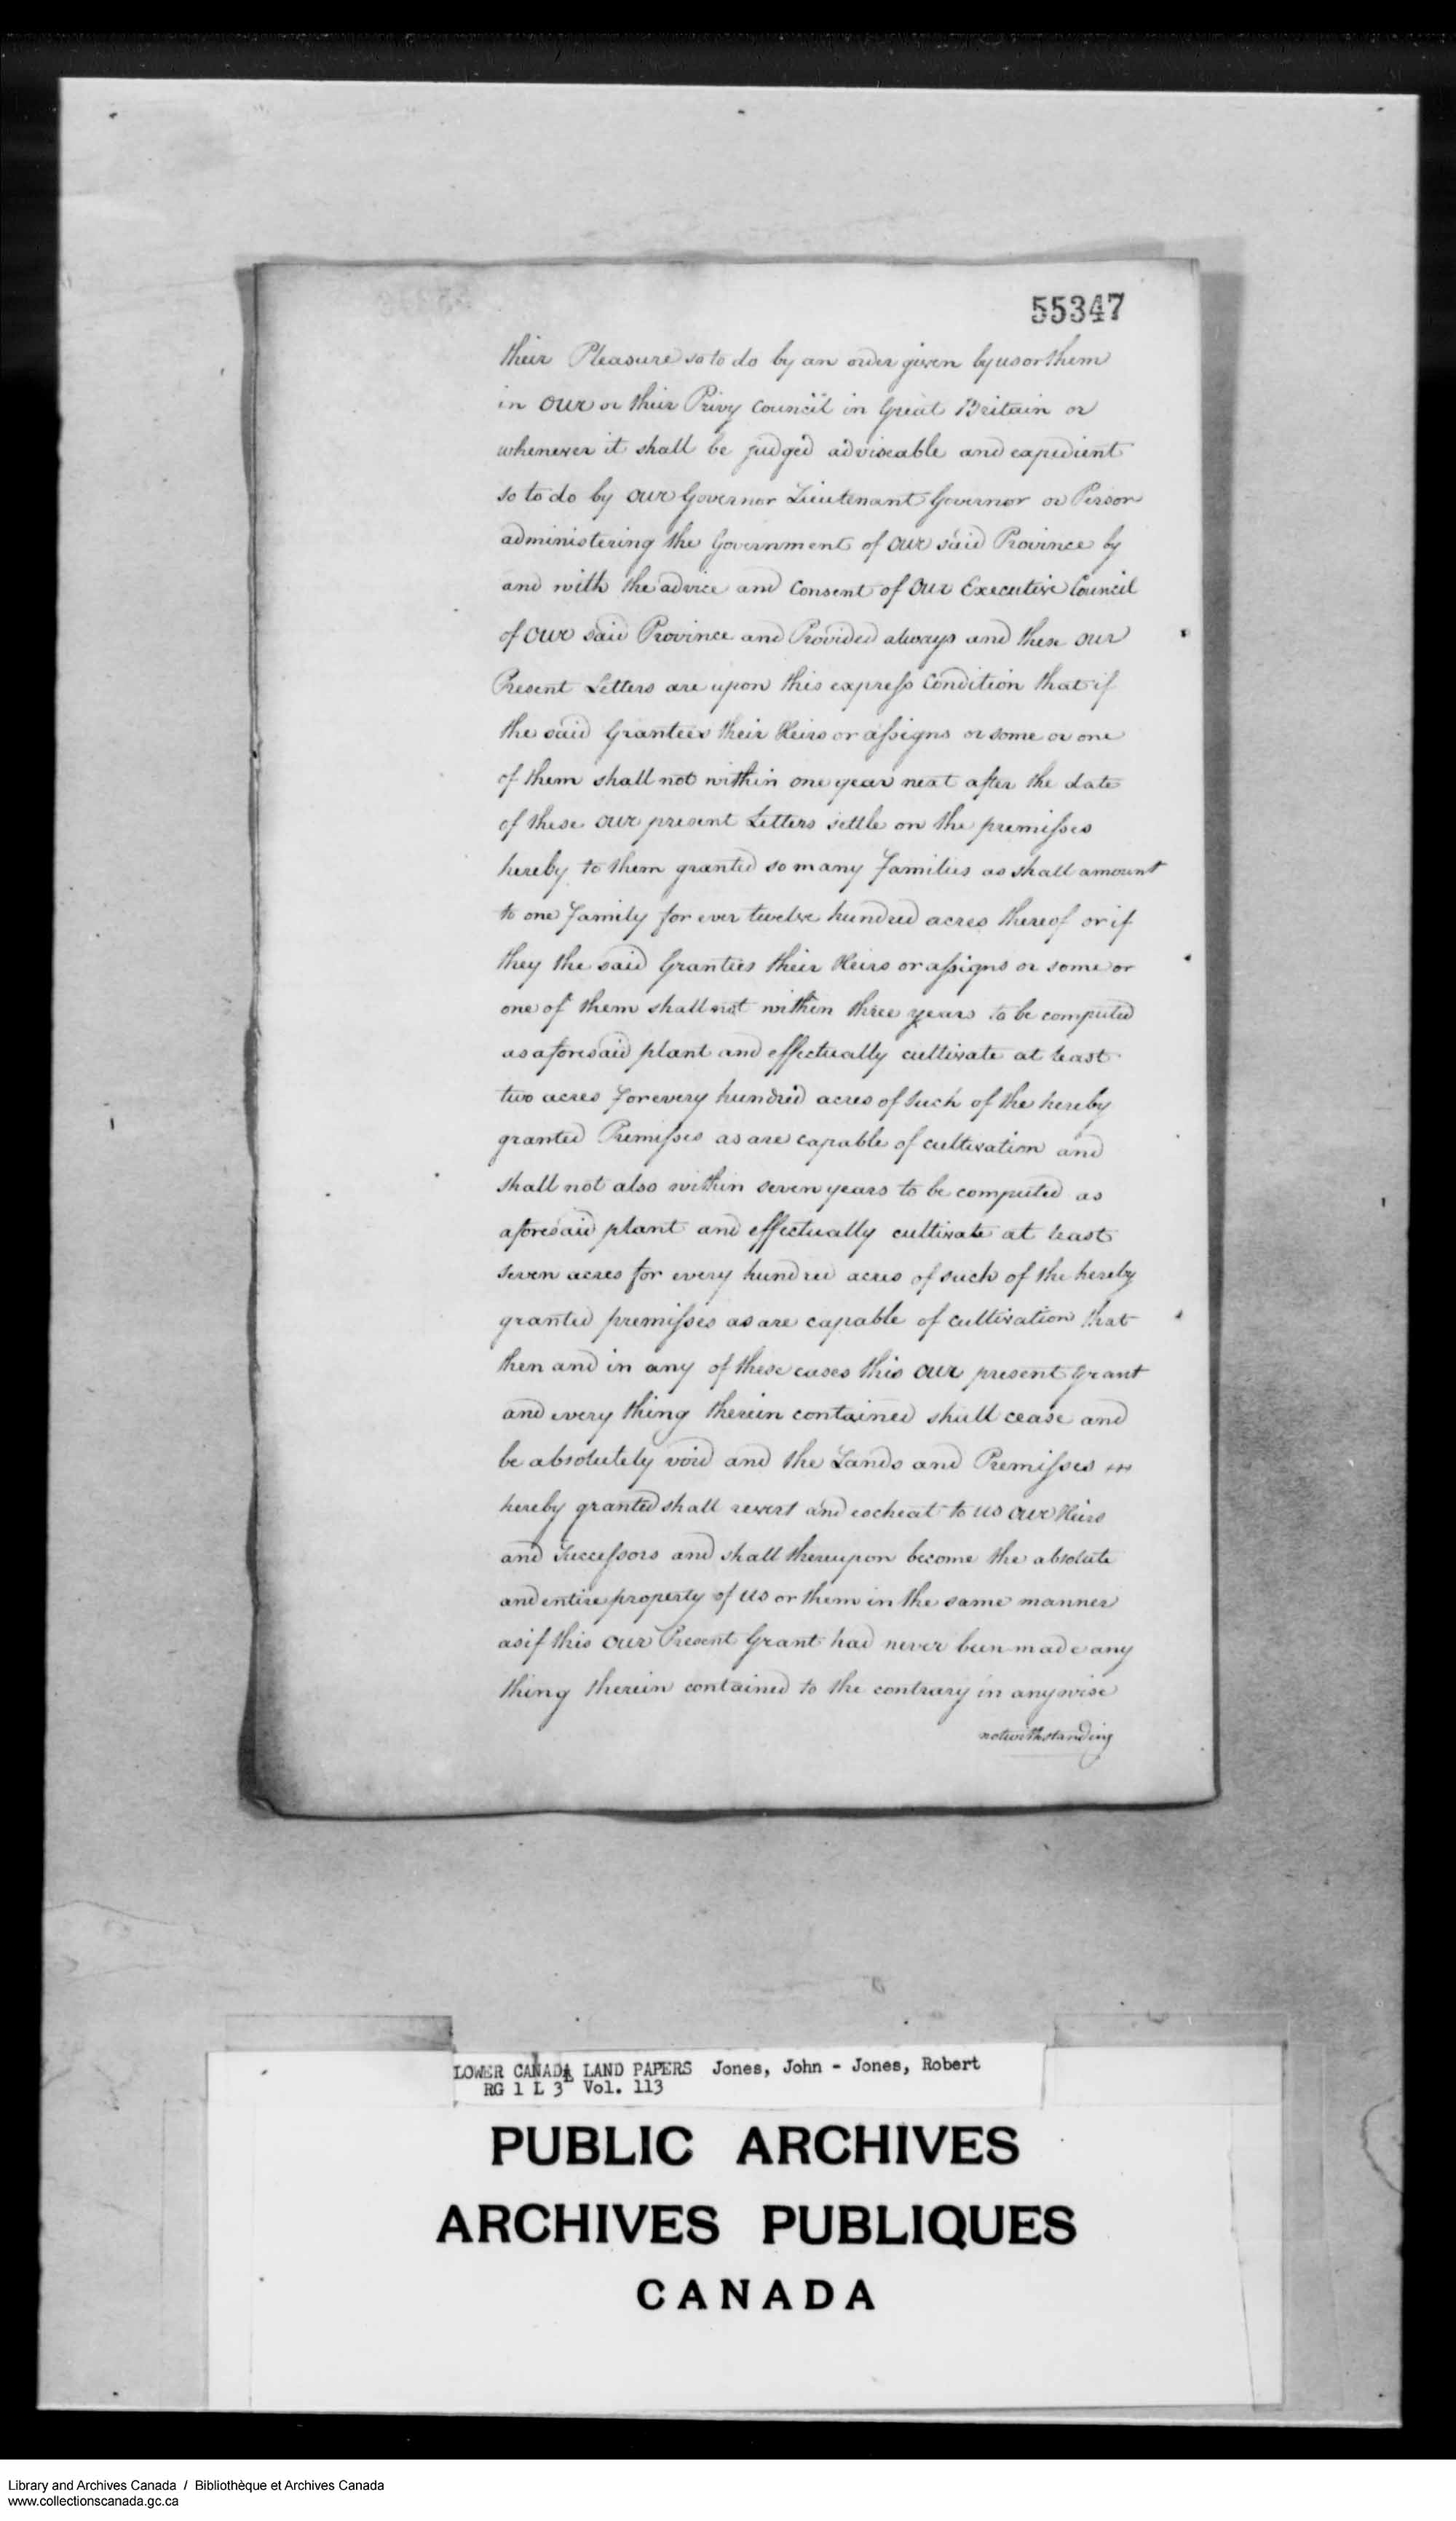 55347
their Pleasure so to do by an order given by us or them
in our or their Privy Council in Great Britain or
whenever it shall be judged adviseable and expedient
so to do by our Governor Lieutenant Governor or Person
administering the Government of our said Province by
and with the advice and Consent of our Executive Council
of our said Province and Provided always and these our
Present Letters are upon this express Condition that if
the said Grantees their Heirs or assigns or some or one
of them shall not within one year next after the date
of these our present Letters settle on the premisses
hereby to them granted so many Families as shall amount
to one Family for ever twelve hundred acres thereof or if
they the said Grantees their Heirs or assigns or some or
one of them shall not within three years to be computed
as aforesaid plant and effectually cultivate at least
two acres for every hundred acres of such of the hereby
granted Premisses as are capable of cultivation and
shall not also within seven years to be computed as
aforesaid plant and effectually cultivate at least
seven acres for every hundred acres of such of the hereby
granted premisses as are capable of cultivation that
then and in any of these cases this our present Grant
and every thing therein contained shall cease and
be absolutely void and the Lands and Premisses
hereby granted shall revert and escheat to us our Heirs
and Successors and shall thereupon become the absolute
and entire property of us or them in the same manner
as if this our Present Grant had never been made any
thing therein contained to the contrary in any wise
notwithstanding
LOWER CANADA LAND PAPERS Jones, John - Jones, Robert
RG 1 L 3 Vol. 113
PUBLIC ARCHIVES
ARCHIVES PUBLIQUES
CANADA
Library and Archives Canada / Bibliothèque et Archives Canada
www.collectionscanada.gc.ca